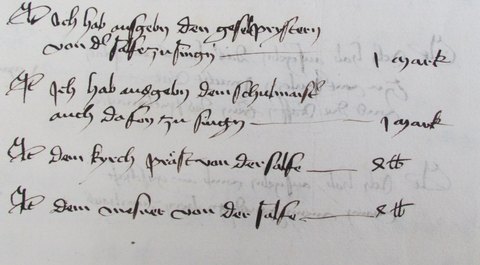 It Ich hab ausgebn den geselpryStern
von dr salfe zu singn 1 mark
It Ich hab ausgebn dem schulmaist
auch da fon zu singn 1 mark
It dem kyrch präst von der salfe
It dem mesner von der salfe